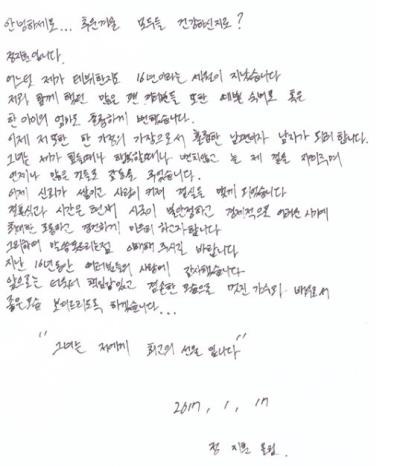 안녕하세요... 추운겨울 모두들 건강하신지요?
정지훈 입니다.
어느덧 제가 데뷔한지도 16년이라는 세월이 지났습니다
저와 함께 했던 많은 팬 여러분들 또한 예쁜 숙녀로 혹은
한 아이의 엄마로 훌륭하게 변했습니다.
이제 저 또한 한 가정의 가장으로서 훌륭한 남편이자 남자가 되려 합니다.
그녀는 제가 힘들때나 행복할때나 변치않고 늘 제 곁을 지켜주며
언제나 많은 감동을 주었습니다.
이제 신뢰가 쌓이고 사랑이 커져 결실을 맺게 되었습니다
결혼식과 시간은 현재 시국이 불안정하고 경제적으로 어려운 시기에
최대한 조용하고 경건하게 하고자합니다
그리하여 말씀못드리는점 이해해 주시길 바랍니다.
지난 16년동안 여러분들의 사랑에 감사했습니다
앞으로는 더욱더 책임감있고 겸손한 모습으로 멋진 가수와 배우로서
좋은모습 보여드리도록 하겠습니다...
"그녀는 저에게 최고의 선물 입니다"
2017. 1. 17
정 지훈 올림.